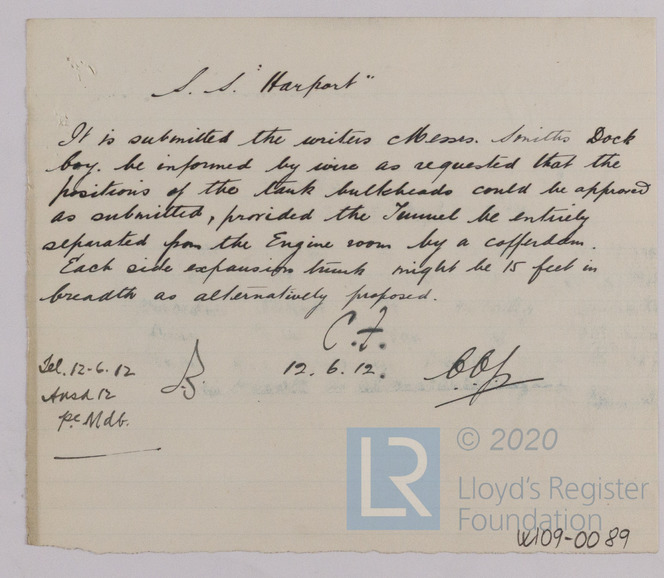 S. S. "Harport"
It is submitted the writers Messrs. Smiths Dock
Coy. be informed by wire as requested that the
positions of the tank bulkheads could be approved
as submitted, provided the Tunnel be entirely
separated from the Engine room by a cofferdam.
Each side expansion trunk might be 15 feet in
breadth as alternatively proposed.
C.F.
12.6.12.
Tel. 12-6.12
Ansd 12
pc Mdb.
LR
© 2020
Lloyd's Register
Foundation
W109-0089